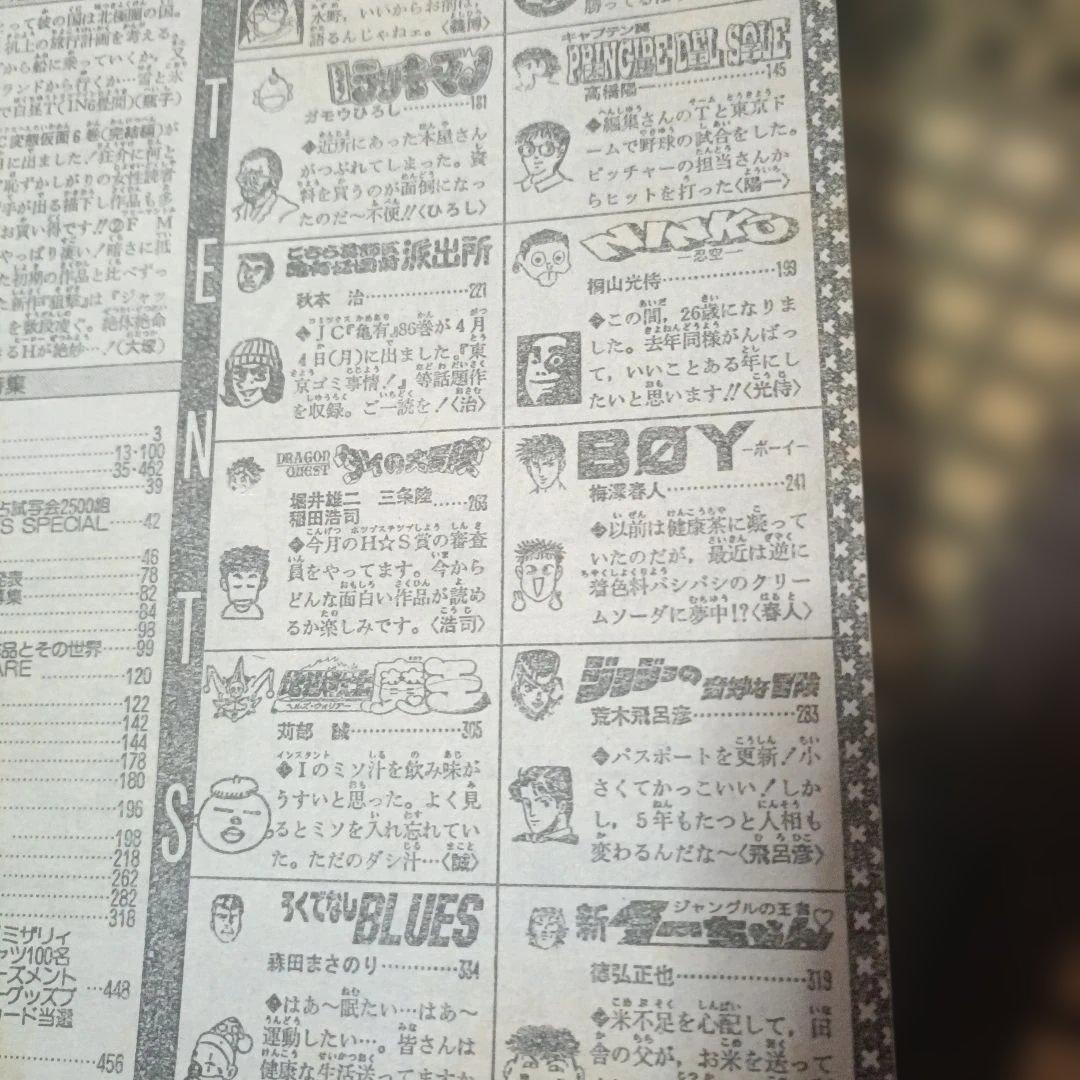 って彼の国は北極圏の国。
机上の旅行計画を考える。
から船に乗っていくか、又
ランドから行くか…雪と氷
で白夜T(IN6畳間)〈瓶子〉
C変態仮面6巻(完結編)が
に出ました!狂介に何と
恥ずかしがりの女性読者
手が出る描下し作品も多
お買い得です!!②F M
やっぱり凄い!暗さに抵
た初期の作品と比べずっ
た新作『狙撃』は『ジャッ
を数段凌ぐ。絶体絶命
るHが絶妙…!〈大塚〉
集
3
13・100
35・462
39
占試写会2500組
'S SPECIAL……42
46
発表……78
募集……82
84
98
品とその世界……99
ARE
120
122
142
144
178
180
196
198
218
262
282
318
ミザリィ
ャツ100名
ーズメント
ーグッズプ
…448
ード当選
456
TENTS
水野,いいからお前は,
語るんじゃねェ。〈義博〉
ラッキーマン
ガモウひろし…………181
◆近所にあった本屋さん
がつぶれてしまった。資
料を買うのが面倒になっ
たのだ〜不便!!〈ひろし〉
こちら葛飾区亀有公園前派出所
秋本 治………………221
◆JC『亀有』86巻が4月
4日(月)に出ました。『東
京ゴミ事情!』等話題作
を収録。ご一読を!〈治〉
DRAGON QUEST ダイの大冒険
堀井雄二 三条陸
稲田浩司……263
◆今月のH☆S賞の審査
員をやってます。今から
どんな面白い作品が読め
るか楽しみです。〈浩司〉
魔王
苅部 誠………………305
◆Iのミソ汁を飲み味が
うすいと思った。よく見
るとミソを入れ忘れてい
た。ただのダシ汁…〈誠〉
ろくでなしBLUES
森田まさのり…………334
◆はあ〜眠たい…はあ〜
運動したい…。皆さんは
健康な生活送ってますか
キャプテン翼
PRINCIPE DEL SOLE
高橋陽一………………145
◆編集さんのTと東京ド
ームで野球の試合をした。
ピッチャーの担当さんか
らヒットを打った〈陽一〉
NINKŪ
―忍空―
桐山光侍………………199
◆この間,26歳になりま
した。去年同様がんばっ
て,いいことある年にし
たいと思います!!〈光侍〉
BØY―ボーイ―
梅澤春人………………241
◆以前は健康茶に凝って
いたのだが,最近は逆に
着色料バシバシのクリー
ムソーダに夢中!?〈春人〉
ジョジョの奇妙な冒険
荒木飛呂彦……………283
◆パスポートを更新!小
さくてかっこいい!しか
し,5年もたつと人相も
変わるんだな〜〈飛呂彦〉
新ジャングルの王者♡ターちゃん
徳弘正也………………319
◆米不足を心配して,田
舎の父が,お米を送って